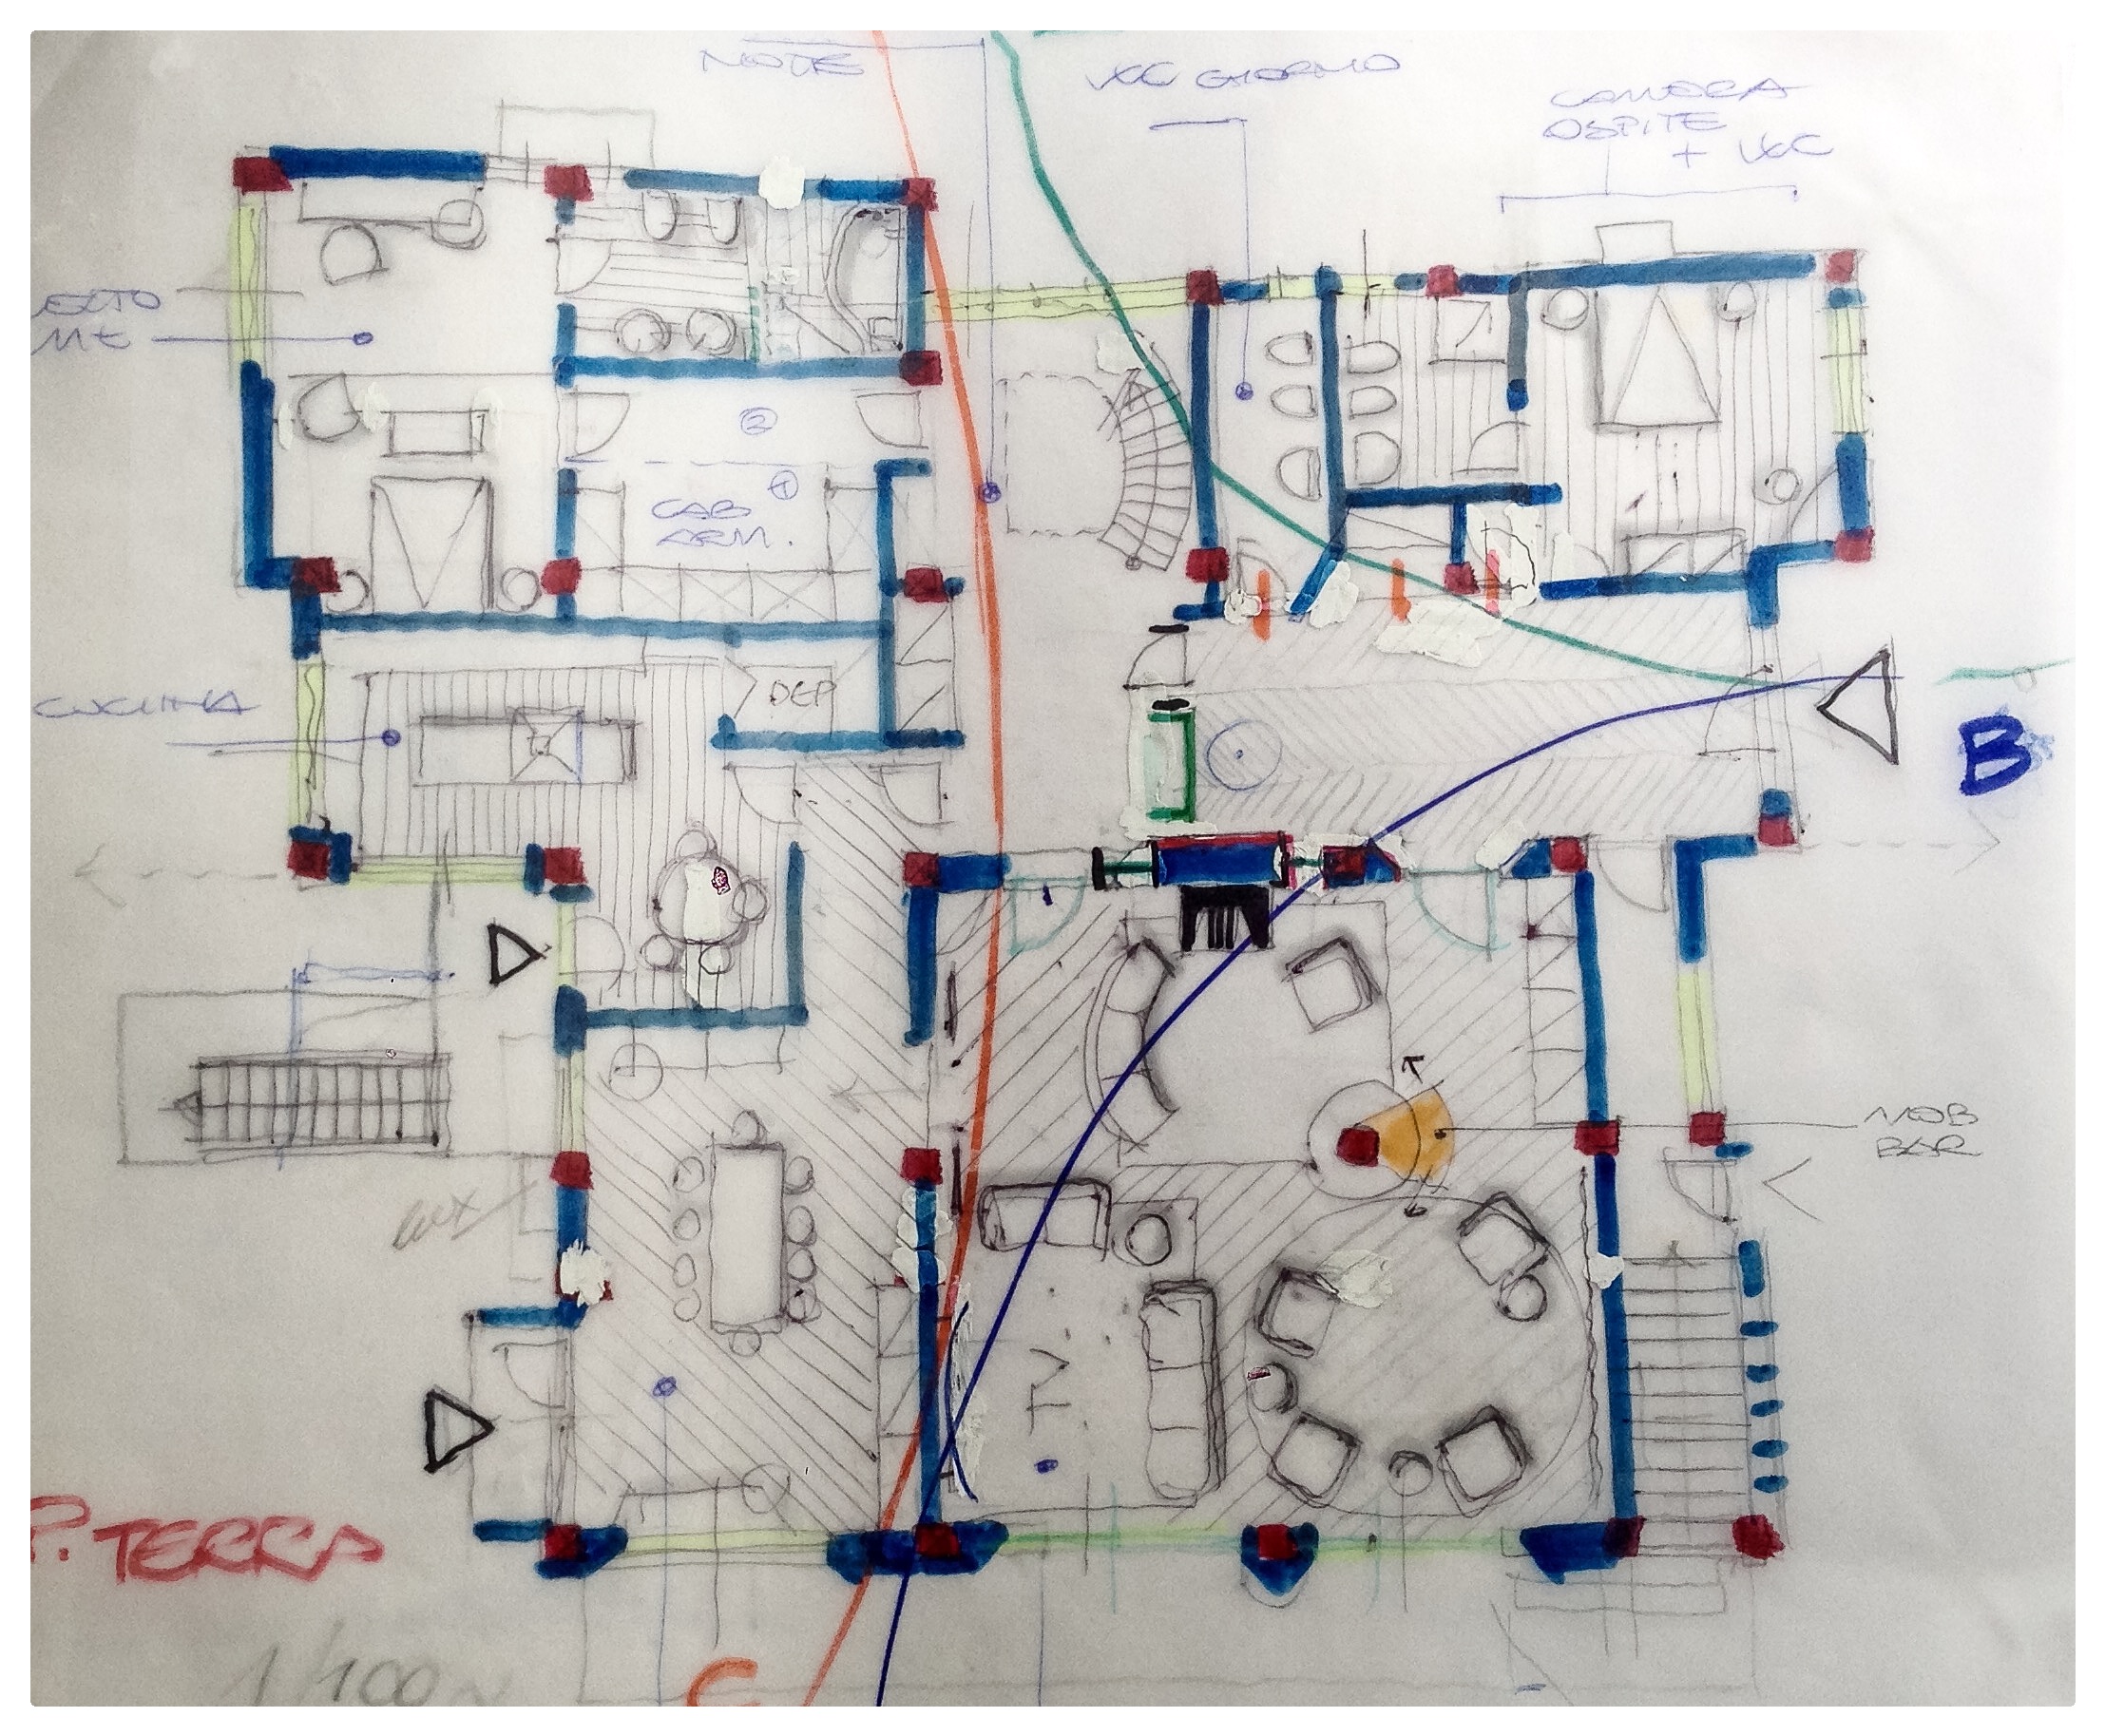 NOTTE
WC GIORNO
CAMERA
OSPITE
+ WC
LETTO
MT
2
1
CAB
ARM.
CUCINA
DEP
B
MOB
BAR
TV
P. TERRA
1/100
C